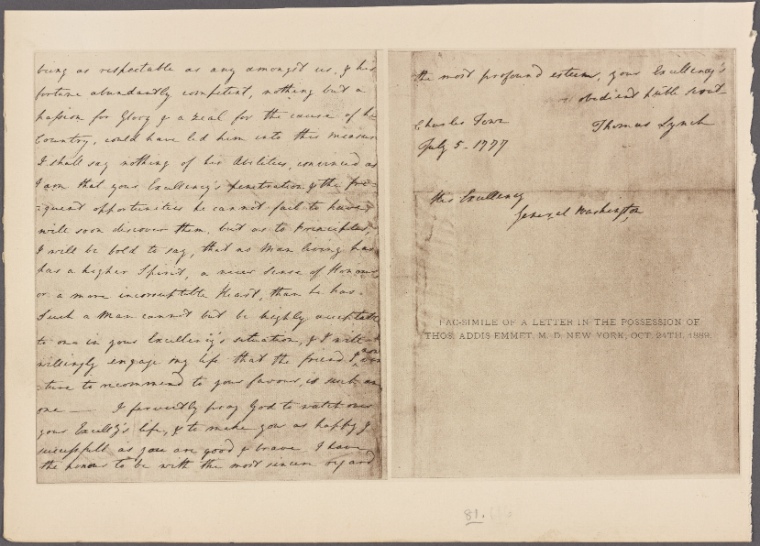 being as respectable as any amongst us, & his
fortune abundantly competent, nothing but a
passion for Glory & a zeal for the cause of his
Country, could have led him into this measure
I shall say nothing of his Abilities, convinced as
I am that your Excellency's penetration & the fre-
=quent opportunities he cannot fail to have
will soon discover them, but as to Principles,
I will be bold to say, that no Man living has
has a higher Spirit, a nicer sense of Honour
or a more incorruptible Heart, than he has.
Such a Man cannot but be highly acceptable
to one in your Excellency's situation, & I will
willingly engage my life that the friend I
-ture to recommend to your favour, is such an
one — I fervently pray God to watch over
your Excelly's life, & to make you as happy &
successfull as you are good & brave. I have
the honour to be with the most sincere regard
the most profound esteem, your Excellency's
obedient hble servt
Charles Town
Thomas Lynch
July 5 - 1777
His Excellency
General Washington
FAC-SIMILE OF A LETTER IN THE POSSESSION OF
THOS. ADDIS EMMET, M. D. NEW YORK, OCT. 24TH, 1889.
81.